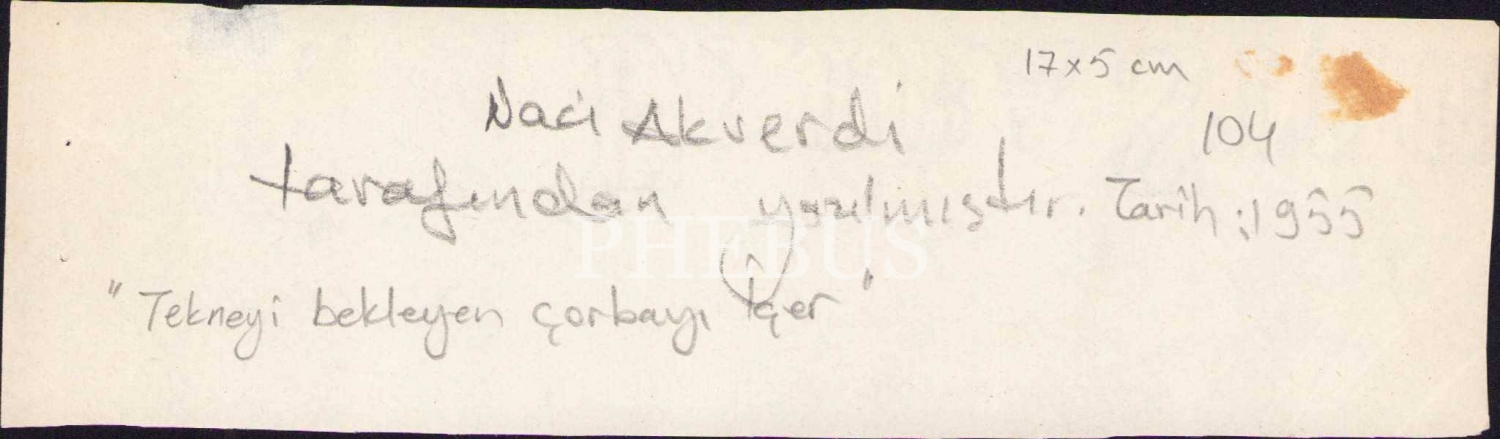 17x5 cm
Naci Akverdi
104
tarafından yazılmıştır. Tarih: 1955
"Tekneyi bekleyen çorbayı içer"
PHEBUS